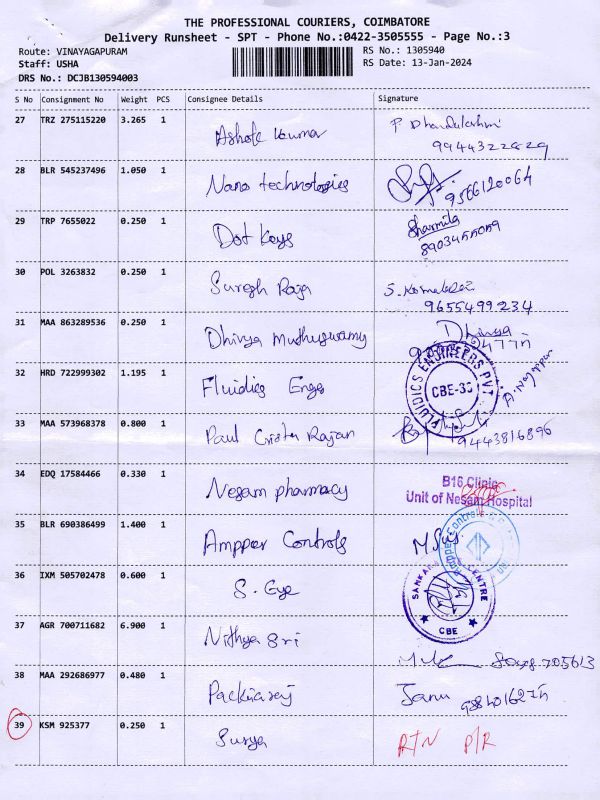 THE PROFESSIONAL COURIERS, COIMBATORE
Delivery Runsheet - SPT - Phone No.:0422-3505555 - Page No.:3
Route: VINAYAGAPURAM RS No.: 1305940
Staff: USHA RS Date: 13-Jan-2024
DRS No.: DCJB130594003
S No Consignment No Weight PCS Consignee Details Signature
27 TRZ 275115220 3.265 1 Ashok Kumar P Dhandalakshmi
28 BLR 545237496 1.050 1 Nano technologies 9566120064
29 TRP 7655022 0.250 1 Dot Keys Sharmila
30 POL 3263832 0.250 1 Suresh Raja S.
9655499234
31 MAA 863289536 0.250 1 Dhivya Muthuswamy Dhivya
32 HRD 722999302 1.195 1 Fluidics Engs FLUIDICS ENGINEERS PVT CBE-36
33 MAA 573968378 0.800 1 Paul Rajan
9443816896
34 EDQ 17584466 0.330 1 Nesam pharmacy B16 Clinic
Unit of Nesam Hospital
35 BLR 690386499 1.400 1 Ampper Controls
36 IXM 505702478 0.600 1 S. Eye CENTRE CBE
37 AGR 700711682 6.900 1 Nithya Sri
38 MAA 292686977 0.480 1 Packiaraj Janu
39 KSM 925377 0.250 1 Surya RTN P/R